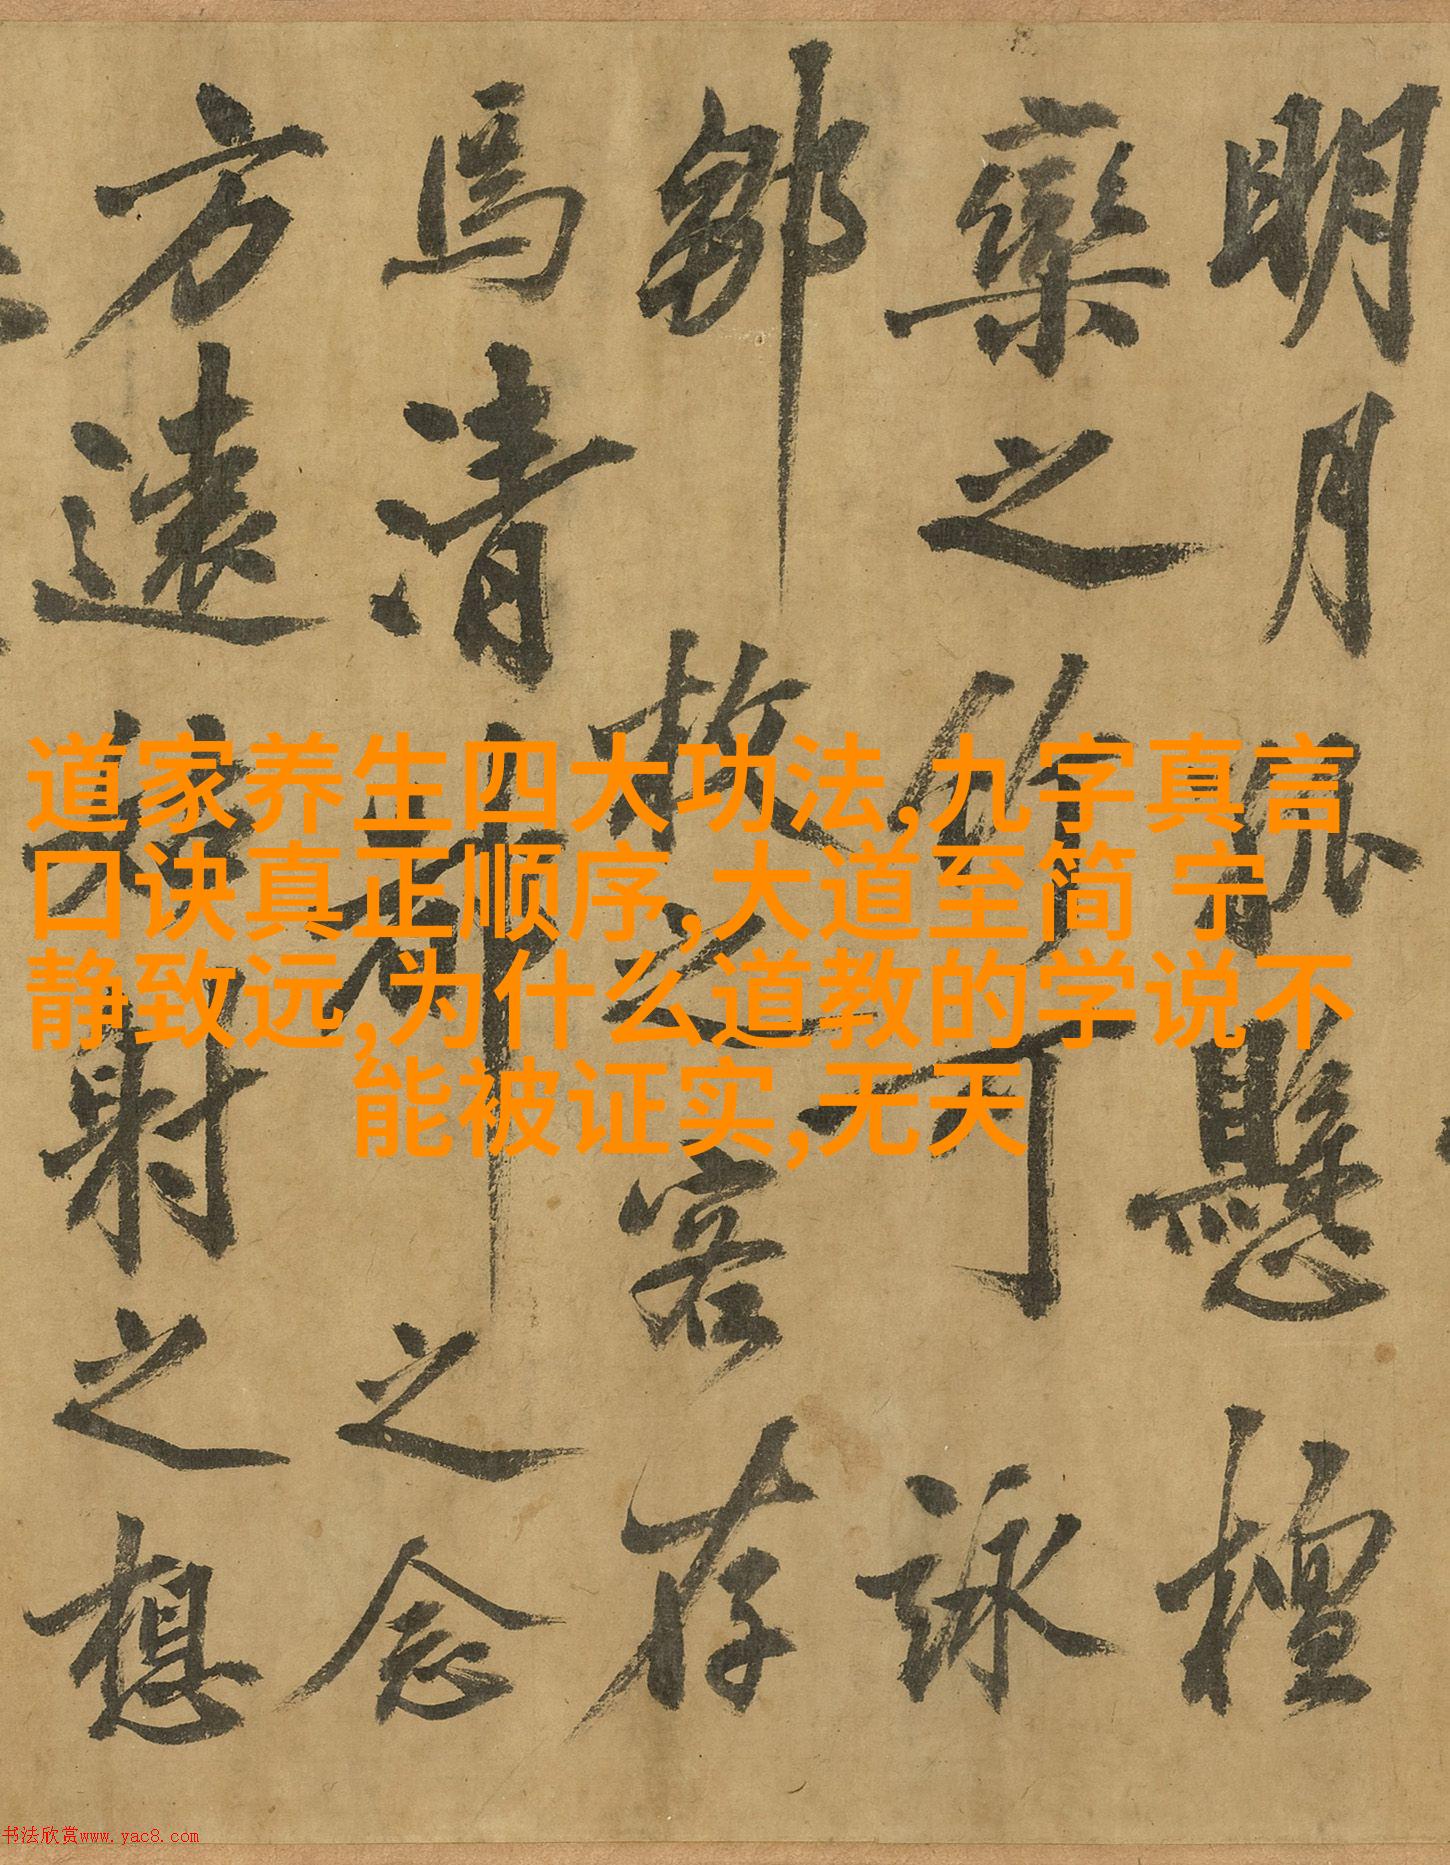 明月懸檀
欒之竹可詠
鄒枚之客存
焉清都之念
方遠姑射之想
道家养生四大功法,九字真言
口诀真正顺序,大道至简 宁
静致远,为什么道教的学说不
能被证实,无天
书法欣赏www.yac8.com